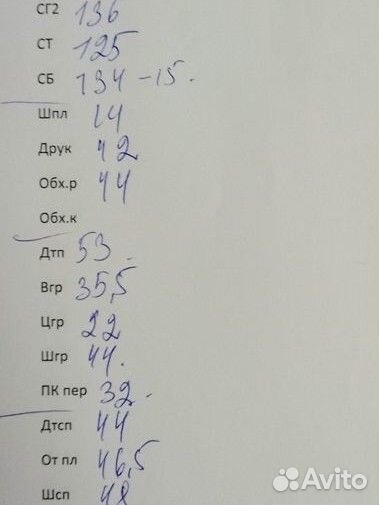 СГ2 136
СТ 125
СБ 134 -15.
Шпл 14
Друк 42
Обх.р 44
Обх.к
Дтп 53.
Вгр 35,5
Цгр 22
Шгр 44.
ПК пер 32.
Дтсп 44
От пл 46,5
Шсп 48
Avito